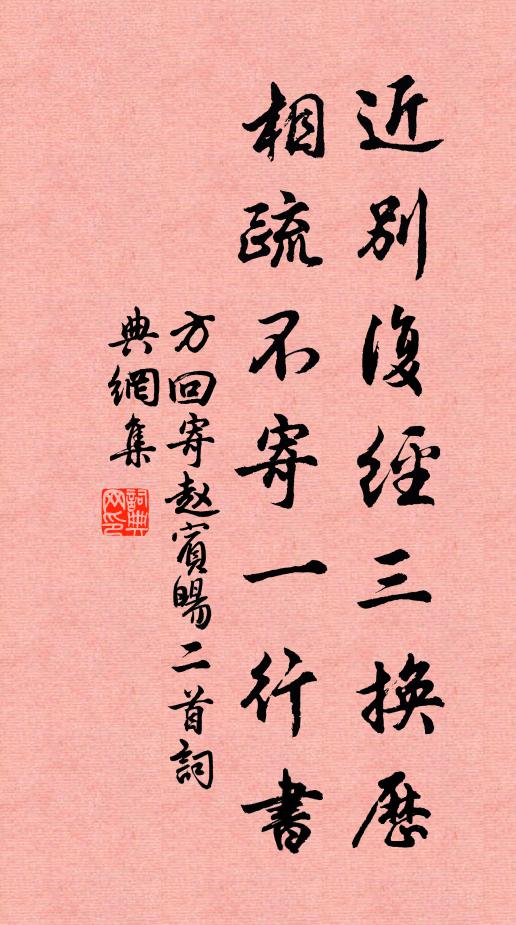 近別復經三換曆
相疏不寄一行書
方回寄趙賓暘二首詞
典網集
詞典網印